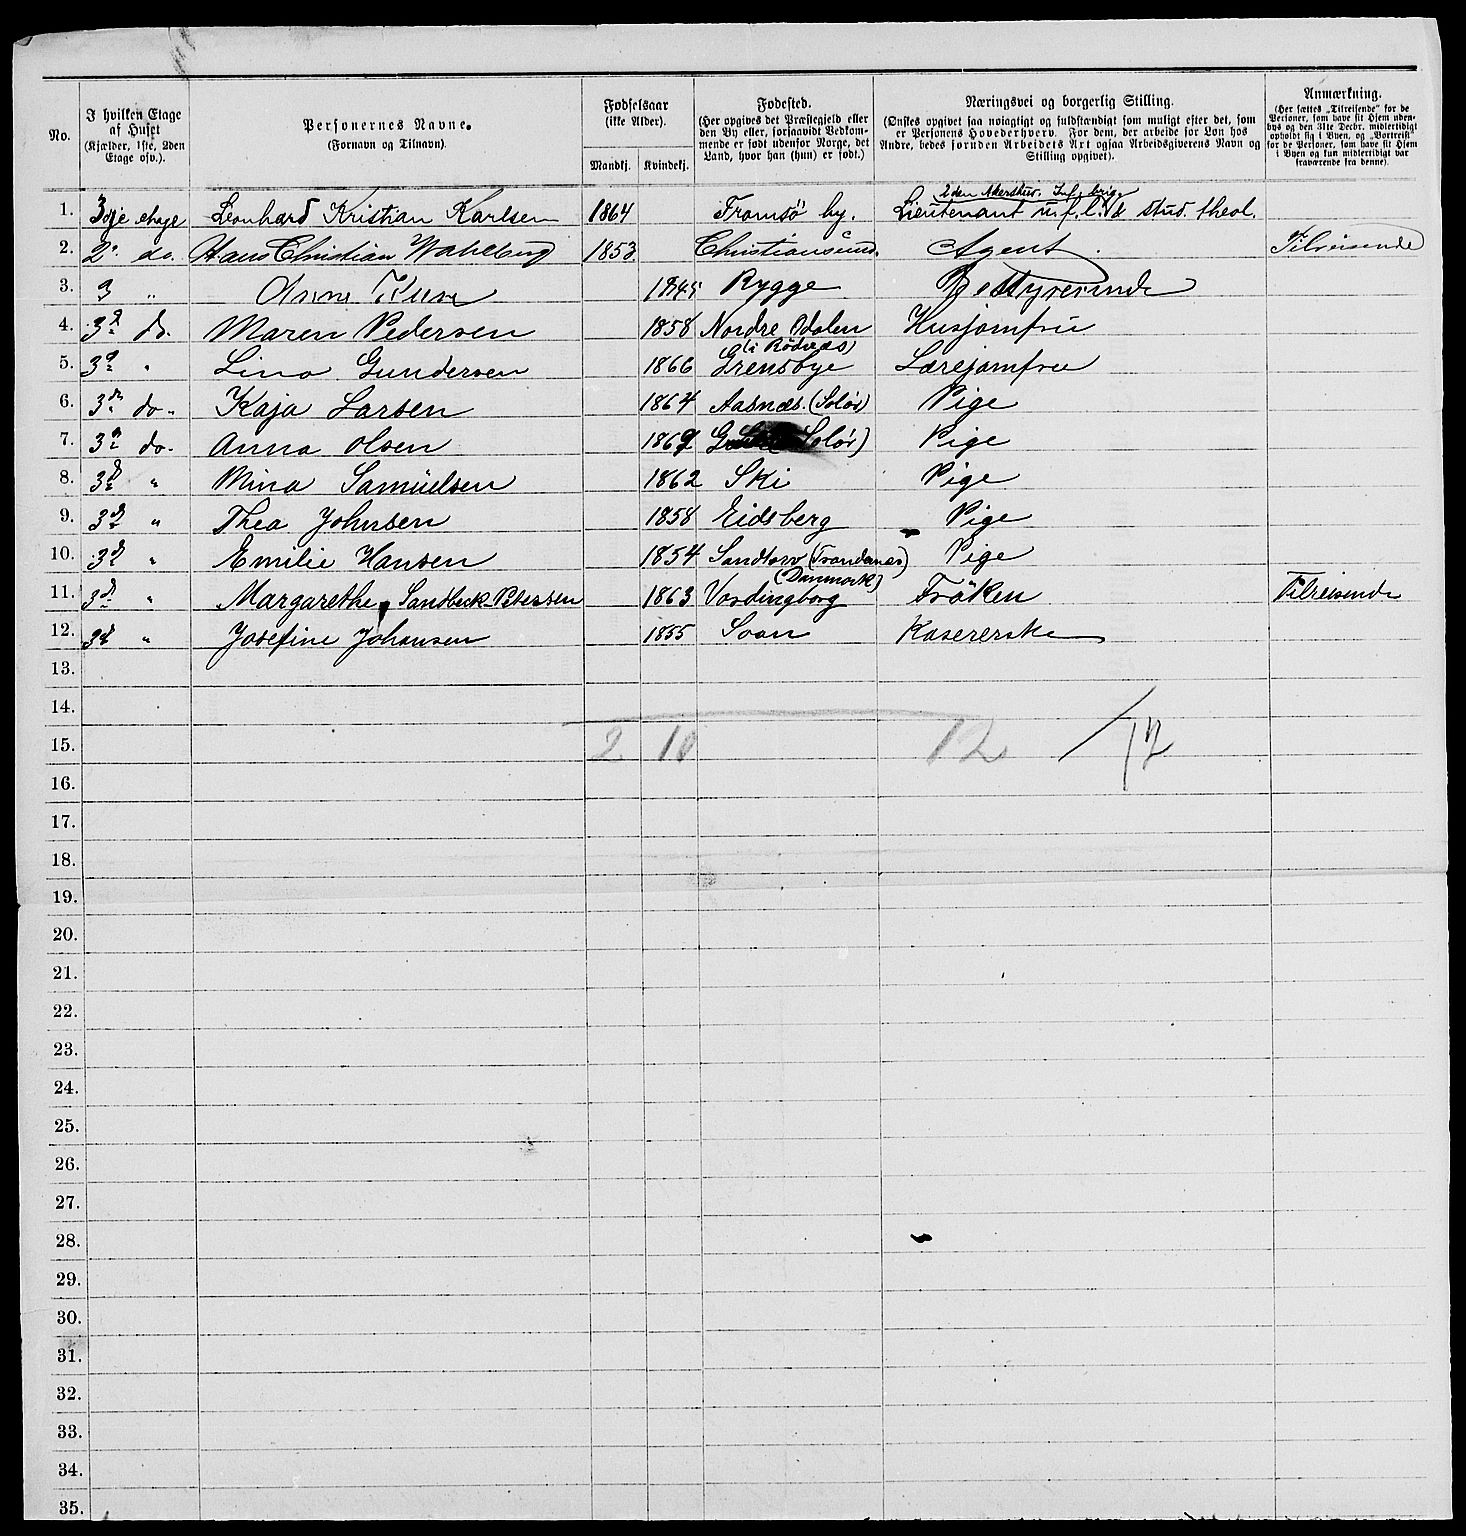 No. | I hvilken Etage af Huset (Kjælder, 1ste, 2den Etage osv.). | Personernes Navne. (Fornavn og Tilnavn). | Fødselsaar (ikke Alder). Mandkj. | Kvindekj. | Fødested. (Her opgives det Præstegjeld eller den By eller, forsaavidt Vedkommende er født udenfor Norge, det Land, hvor han (hun) er født.) | Næringsvei og borgerlig Stilling. (Ønskes opgivet saa nøiagtigt og fuldstændigt som muligt efter det, som er Personens Hovederhverv. For dem, der arbeide for Løn hos Andre, bedes foruden Arbeidets Art ogsaa Arbeidsgiverens Navn og Stilling opgivet). | Anmærkning. (Her sættes „Tilreisende“ for de Personer, som have sit Hjem udenbys og den 31te Decbr. midlertidigt opholdt sig i Byen, og „Bortreist“ for de Personer, som have sit Hjem i Byen og kun midlertidigt var fraværende fra denne).
1. 3dje etage Leonhard Kristian Karlsen 1864 Tromsø by. 2den Akershus. Inf. brig Lieutenant u.f.l. & stud. theol.
2. 2. do. Hans Christian Wahlberg 1853 Christianssund. Agent Tilreisende
3. 3 " Anne 1845 Rygge Bestyrerinde
4. 3d do. Maren Pedersen 1858 Nordre Odalen Husjomfru
5. 3d " Lina Gundersen 1866 Grensbye (i Rødnæs) Lærejomfru
6. 3d do. Kaja Larsen 1864 Aasnæs. (Solør) Pige
7. 3d do. Anna Olsen (Solør) Pige
8. 3d " Mina Samüelsen 1862 Ski Pige
9. 3d " Thea Johnsen 1858 Eidsberg Pige
10. 3d " Emilie Hansen 1854 Sandtorv (Trondenæs) Pige
11. 3d " Margarethe Sandbeck-Petersen 1863 Vordingborg (Danmark) Frøken Tilreisende
12. 3d " Josefine Johansen 1855 Soon Kasererske
13.
14.
15. 2 10 12 / 12
16.
17.
18.
19.
20.
21.
22.
23.
24.
25.
26.
27.
28.
29.
30.
31.
32.
33.
34.
35.